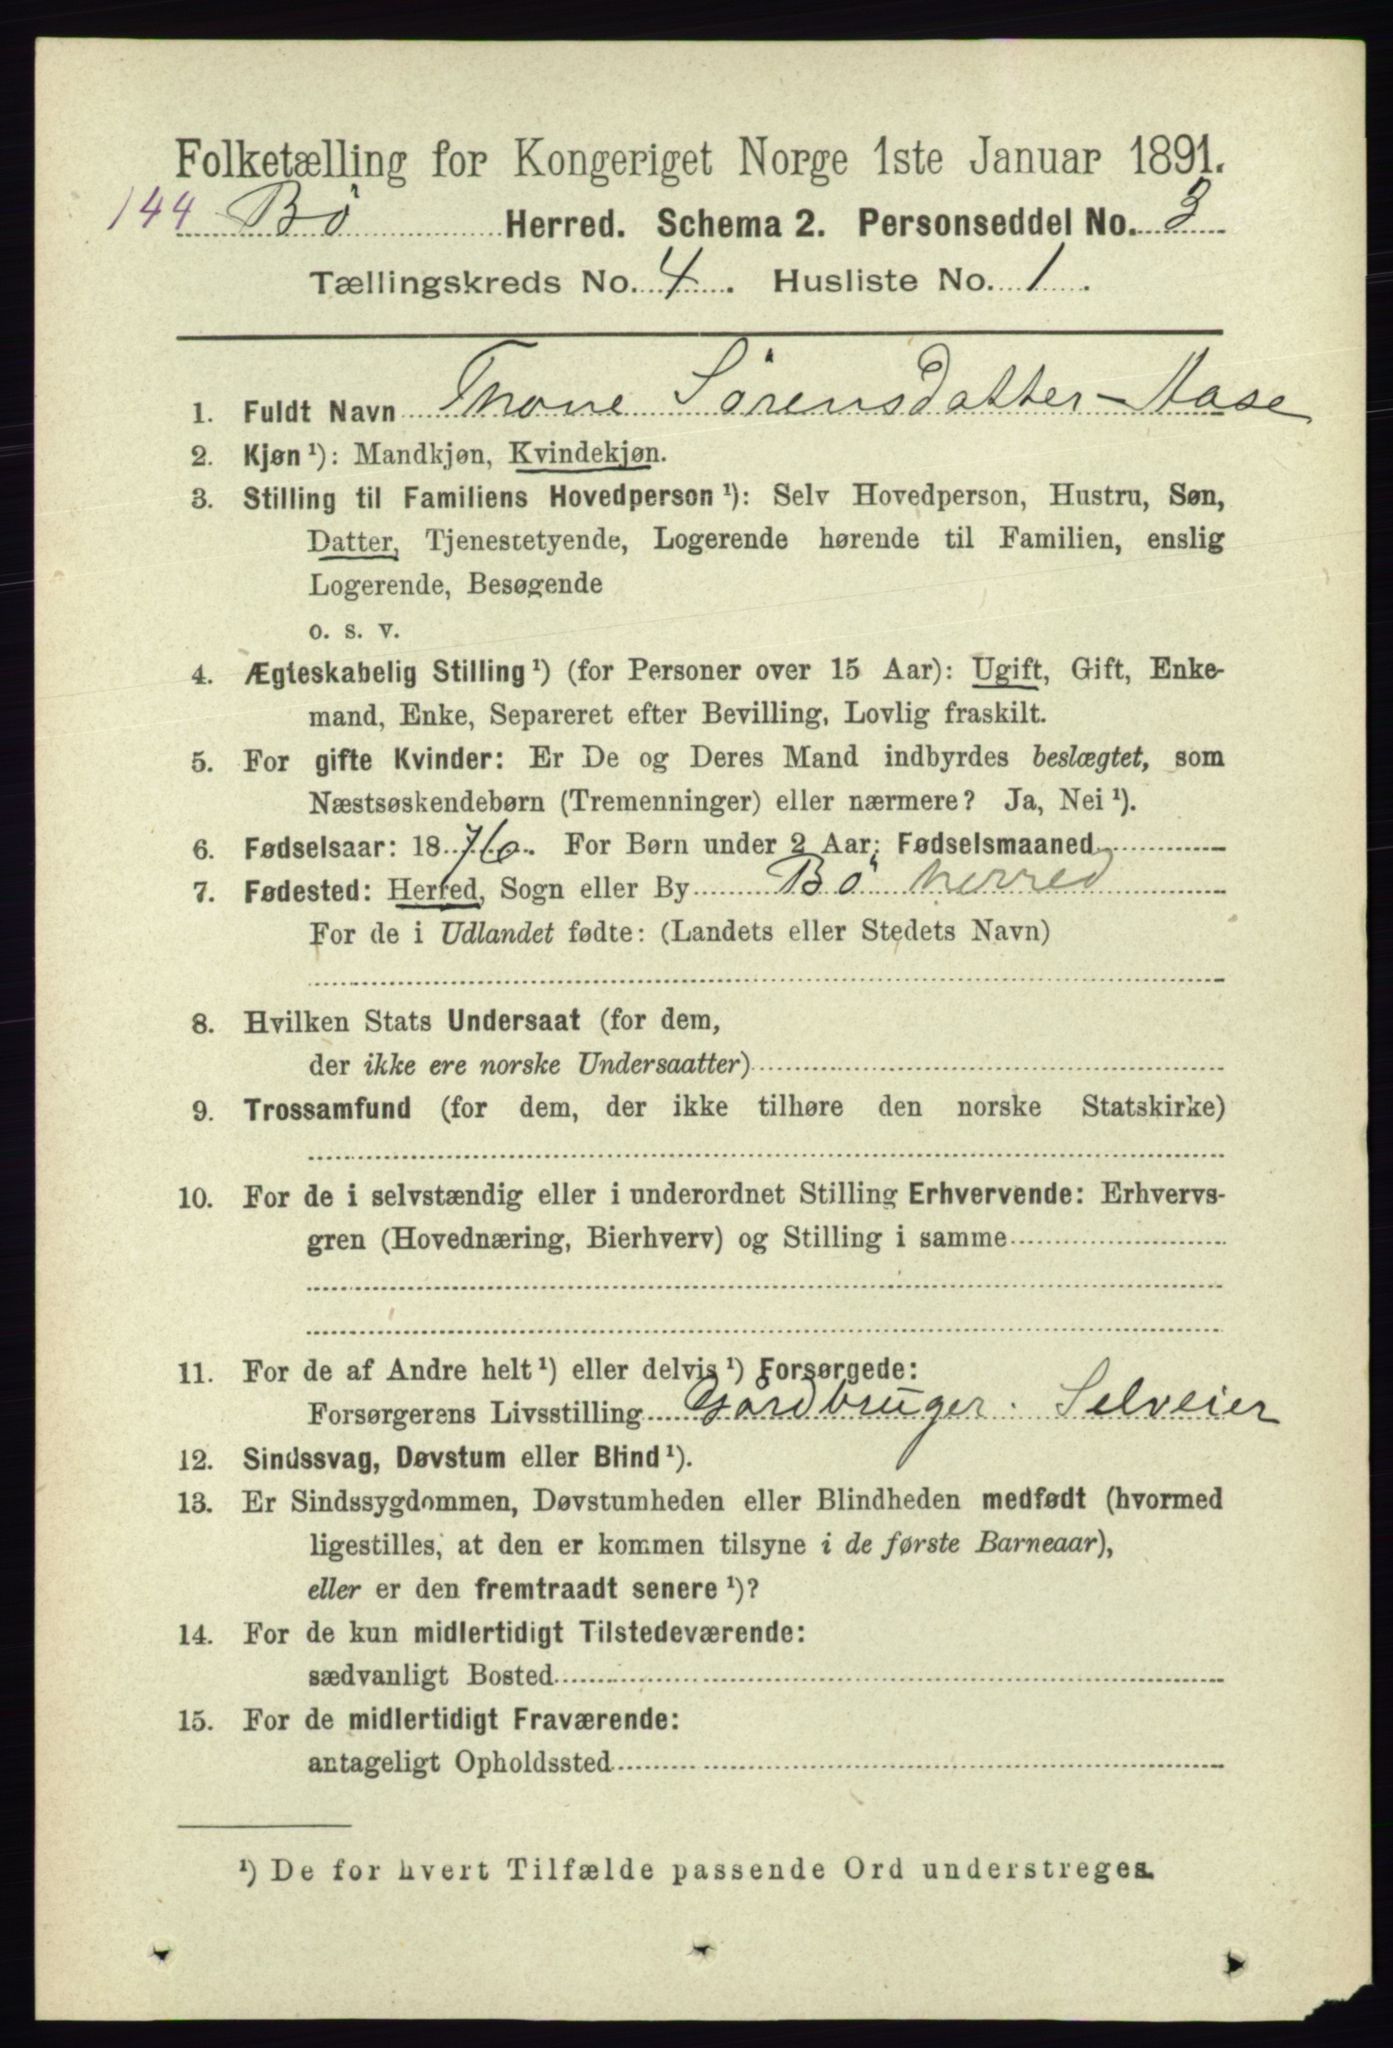 Folketælling for Kongeriget Norge 1ste Januar 1891.
144 Bø Herred. Schema 2. Personseddel No. 3
Tællingskreds No. 4. Husliste No. 1.
1. Fuldt Navn Thone Sörensdatter Aase
2. Kjøn ¹): Mandkjøn, Kvindekjøn.
3. Stilling til Familiens Hovedperson ¹): Selv Hovedperson, Hustru, Søn,
Datter, Tjenestetyende, Logerende hørende til Familien, enslig
Logerende, Besøgende
o. s. v.
4. Ægteskabelig Stilling ¹) (for Personer over 15 Aar): Ugift, Gift, Enke-
mand, Enke, Separeret efter Bevilling, Lovlig fraskilt.
5. For gifte Kvinder: Er De og Deres Mand indbyrdes beslægtet, som
Næstsøskendebørn (Tremenninger) eller nærmere? Ja, Nei ¹).
6. Fødselsaar: 1876. For Børn under 2 Aar: Fødselsmaaned
7. Fødested: Herred, Sogn eller By Bö herred
For de i Udlandet fødte: (Landets eller Stedets Navn)
8. Hvilken Stats Undersaat (for dem,
der ikke ere norske Undersaatter)
9. Trossamfund (for dem, der ikke tilhøre den norske Statskirke)
10. For de i selvstændig eller i underordnet Stilling Erhvervende: Erhvervs-
gren (Hovednæring, Bierhverv) og Stilling i samme
11. For de af Andre helt ¹) eller delvis ¹) Forsørgede:
Forsørgerens Livsstilling Gårdbruger. Selveier
12. Sindssvag, Døvstum eller Blind ¹).
13. Er Sindssygdommen, Døvstumheden eller Blindheden medfødt (hvormed
ligestilles, at den er kommen tilsyne i de første Barneaar),
eller er den fremtraadt senere ¹)?
14. For de kun midlertidigt Tilstedeværende:
sædvanligt Bosted
15. For de midlertidigt Fraværende:
antageligt Opholdssted
¹) De for hvert Tilfælde passende Ord understreges.